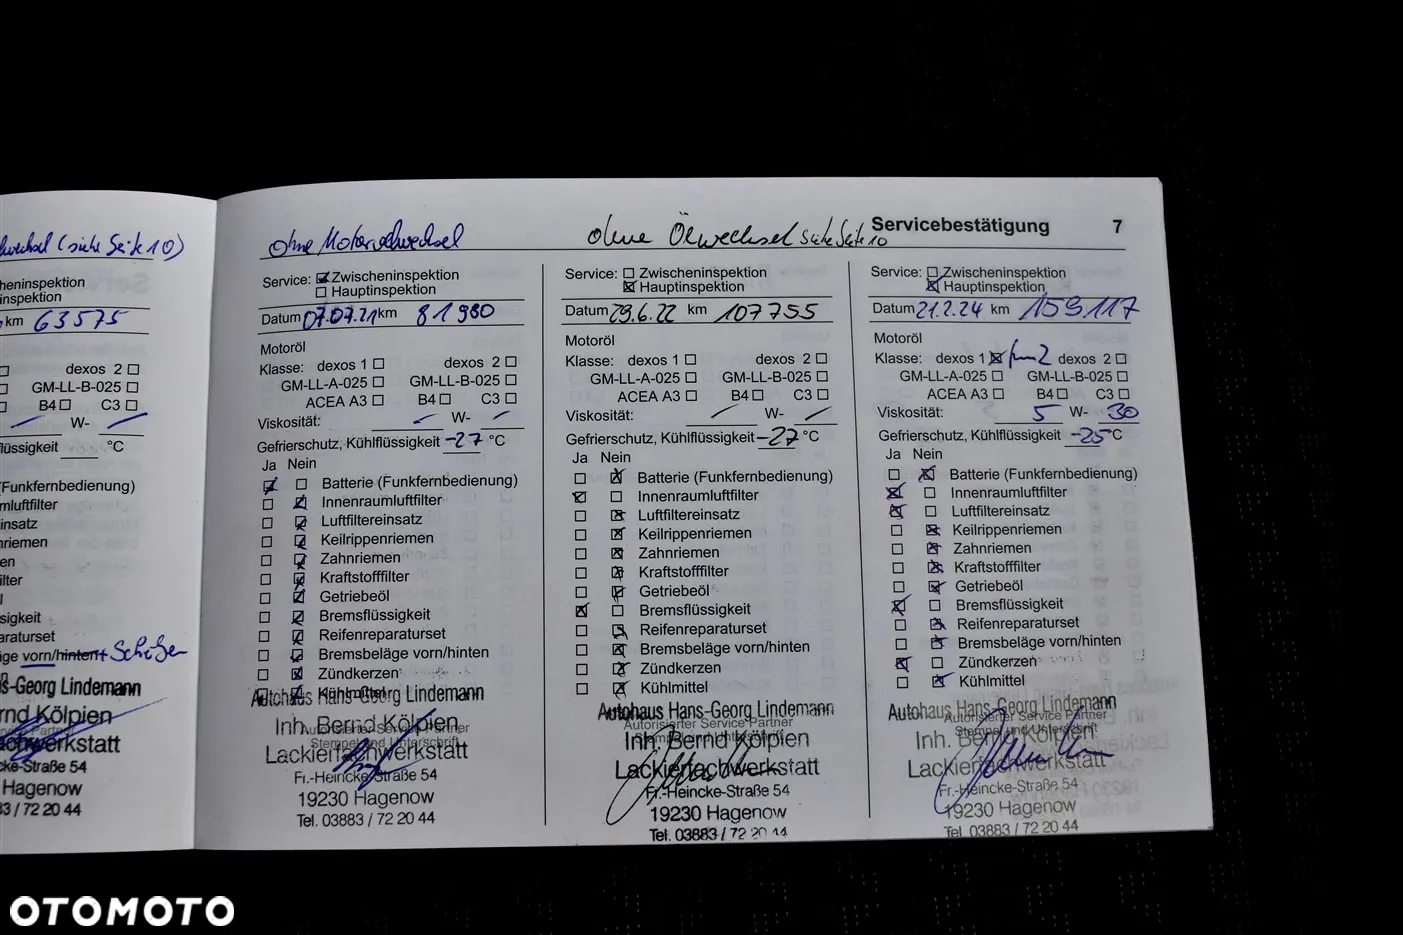 lwechsel (siehe Seite 10)
heninspektion
inspektion
km 63575
dexos 2
GM-LL-B-025
B4 C3
W-
lüssigkeit °C
(Funkfernbedienung)
mluftfilter
insatz
riemen
en
ilter
l
sigkeit
araturset
äge vorn/hinten + Scheiben
s-Georg Lindemann
rnd Kölpien
achwerkstatt
cke-Straße 54
Hagenow
83 / 72 20 44
ohne Motorölwechsel
Service: Zwischeninspektion
Hauptinspektion
Datum 07.07.21 km 81980
Motoröl
Klasse: dexos 1 dexos 2
GM-LL-A-025 GM-LL-B-025
ACEA A3 B4 C3
Viskosität: - W- -
Gefrierschutz, Kühlflüssigkeit -27 °C
Ja Nein
Batterie (Funkfernbedienung)
Innenraumluftfilter
Luftfiltereinsatz
Keilrippenriemen
Zahnriemen
Kraftstofffilter
Getriebeöl
Bremsflüssigkeit
Reifenreparaturset
Bremsbeläge vorn/hinten
Zündkerzen
Kühlmittel
Autohaus Hans-Georg Lindemann
Inh. Bernd Kölpien
Autorisierter Service Partner
Stempel und Unterschrift
Lackierfachwerkstatt
Fr.-Heincke-Straße 54
19230 Hagenow
Tel. 03883 / 72 20 44
ohne Ölwechsel siehe Seite 10
Service: Zwischeninspektion
Hauptinspektion
Datum 29.6.22 km 107755
Motoröl
Klasse: dexos 1 dexos 2
GM-LL-A-025 GM-LL-B-025
ACEA A3 B4 C3
Viskosität: - W- -
Gefrierschutz, Kühlflüssigkeit -27 °C
Ja Nein
Batterie (Funkfernbedienung)
Innenraumluftfilter
Luftfiltereinsatz
Keilrippenriemen
Zahnriemen
Kraftstofffilter
Getriebeöl
Bremsflüssigkeit
Reifenreparaturset
Bremsbeläge vorn/hinten
Zündkerzen
Kühlmittel
Autohaus Hans-Georg Lindemann
Autorisierter Service Partner
Stempel und Unterschrift
Inh. Bernd Kölpien
Lackierfachwerkstatt
Fr.-Heincke-Straße 54
19230 Hagenow
Tel. 03883 / 72 20 44
Servicebestätigung 7
Service: Zwischeninspektion
Hauptinspektion
Datum 21.2.24 km 159117
Motoröl
Klasse: dexos 1 dexos 2
GM-LL-A-025 GM-LL-B-025
ACEA A3 B4 C3
Viskosität: 5 W- 30
Gefrierschutz, Kühlflüssigkeit -25 °C
Ja Nein
Batterie (Funkfernbedienung)
Innenraumluftfilter
Luftfiltereinsatz
Keilrippenriemen
Zahnriemen
Kraftstofffilter
Getriebeöl
Bremsflüssigkeit
Reifenreparaturset
Bremsbeläge vorn/hinten
Zündkerzen
Kühlmittel
Autohaus Hans-Georg Lindemann
Autorisierter Service Partner
Stempel und Unterschrift
Inh. Bernd Kölpien
Lackierfachwerkstatt
Fr.-Heincke-Straße 54
19230 Hagenow
Tel. 03883 / 72 20 44
OTOMOTO